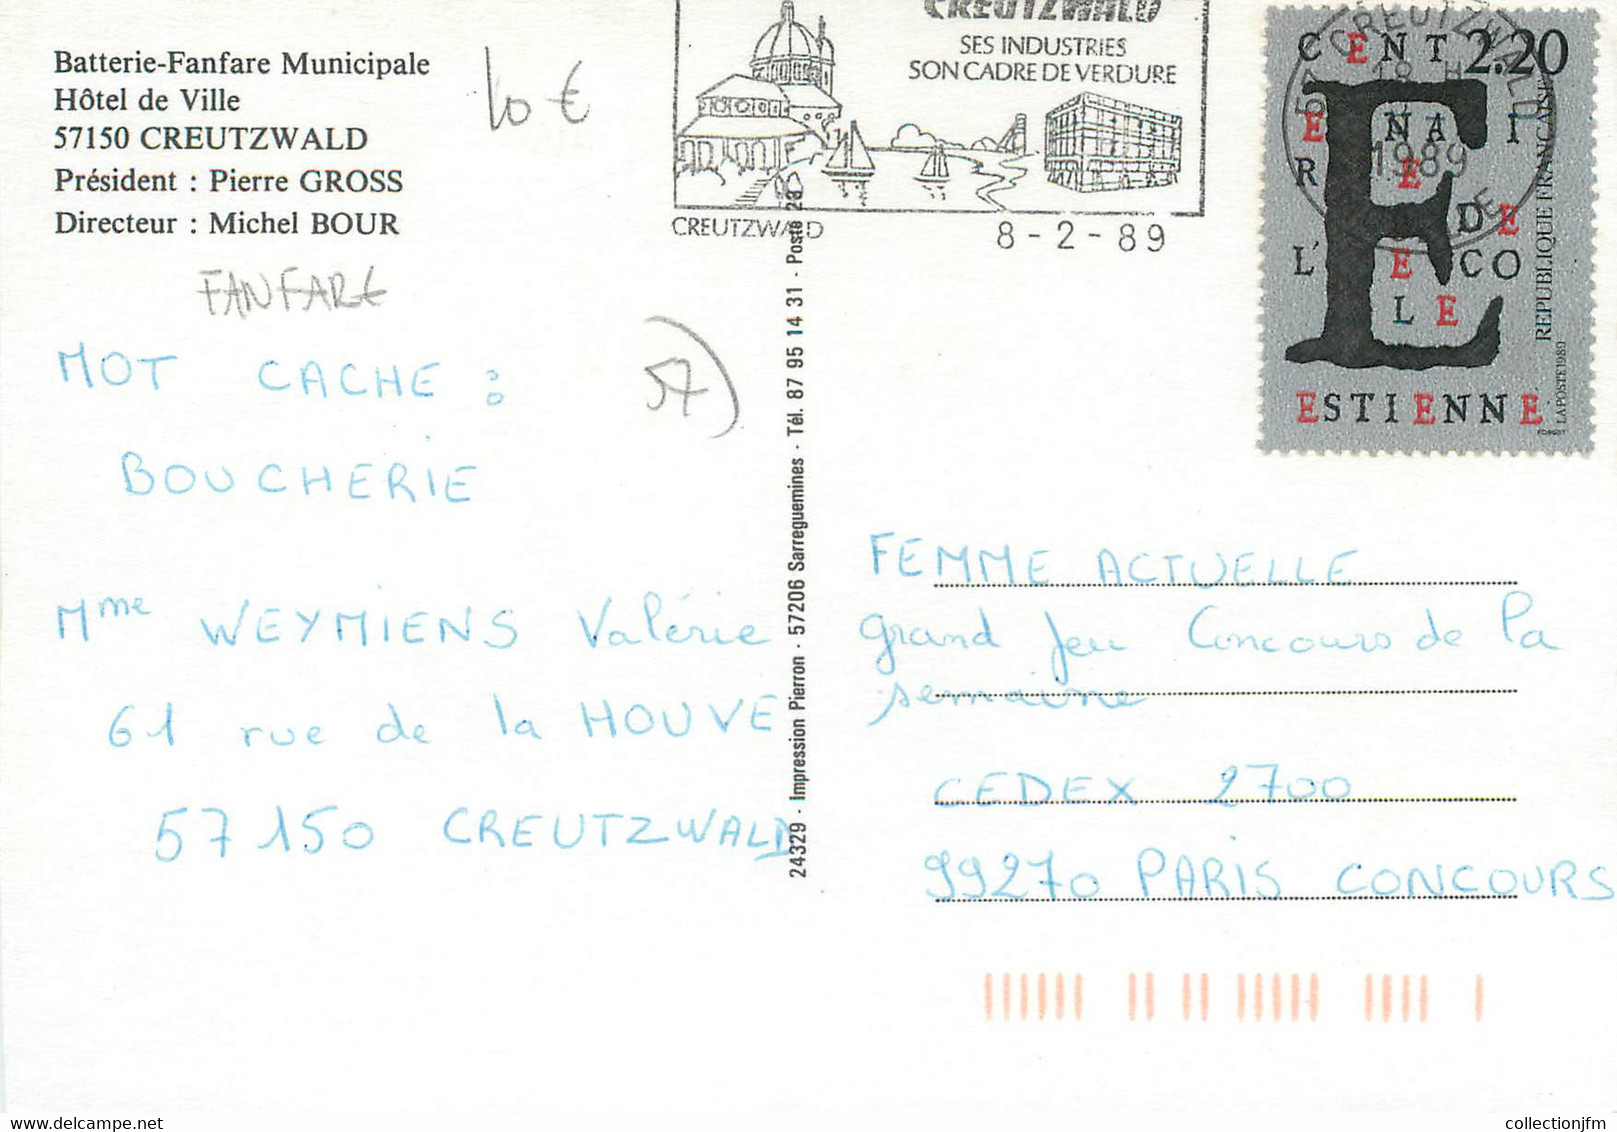 Batterie-Fanfare Municipale
Hôtel de Ville
57150 CREUTZWALD
Président : Pierre GROSS
Directeur : Michel BOUR
10 €
FANFARE
57)
MOT CACHE :
BOUCHERIE
Mme WEYMIENS Valérie
61 rue de la HOUVE
57150 CREUTZWALD
24329 - Impression Pierron - 57206 Sarreguemines - Tél. 87 95 14 31 - Poste 28
CREUTZWALD
SES INDUSTRIES
SON CADRE DE VERDURE
CREUTZWALD
8-2-89
CREUTZWALD
18 H
1989
CENT 2.20
E
ENAI
RE
DE
L'ECO
LE
ESTIENNE
REPUBLIQUE FRANÇAISE
LA POSTE 1989
FEMME ACTUELLE
grand Jeu Concours de la
semaine
CEDEX 2700
99270 PARIS CONCOURS
www.collectionjfm.fr